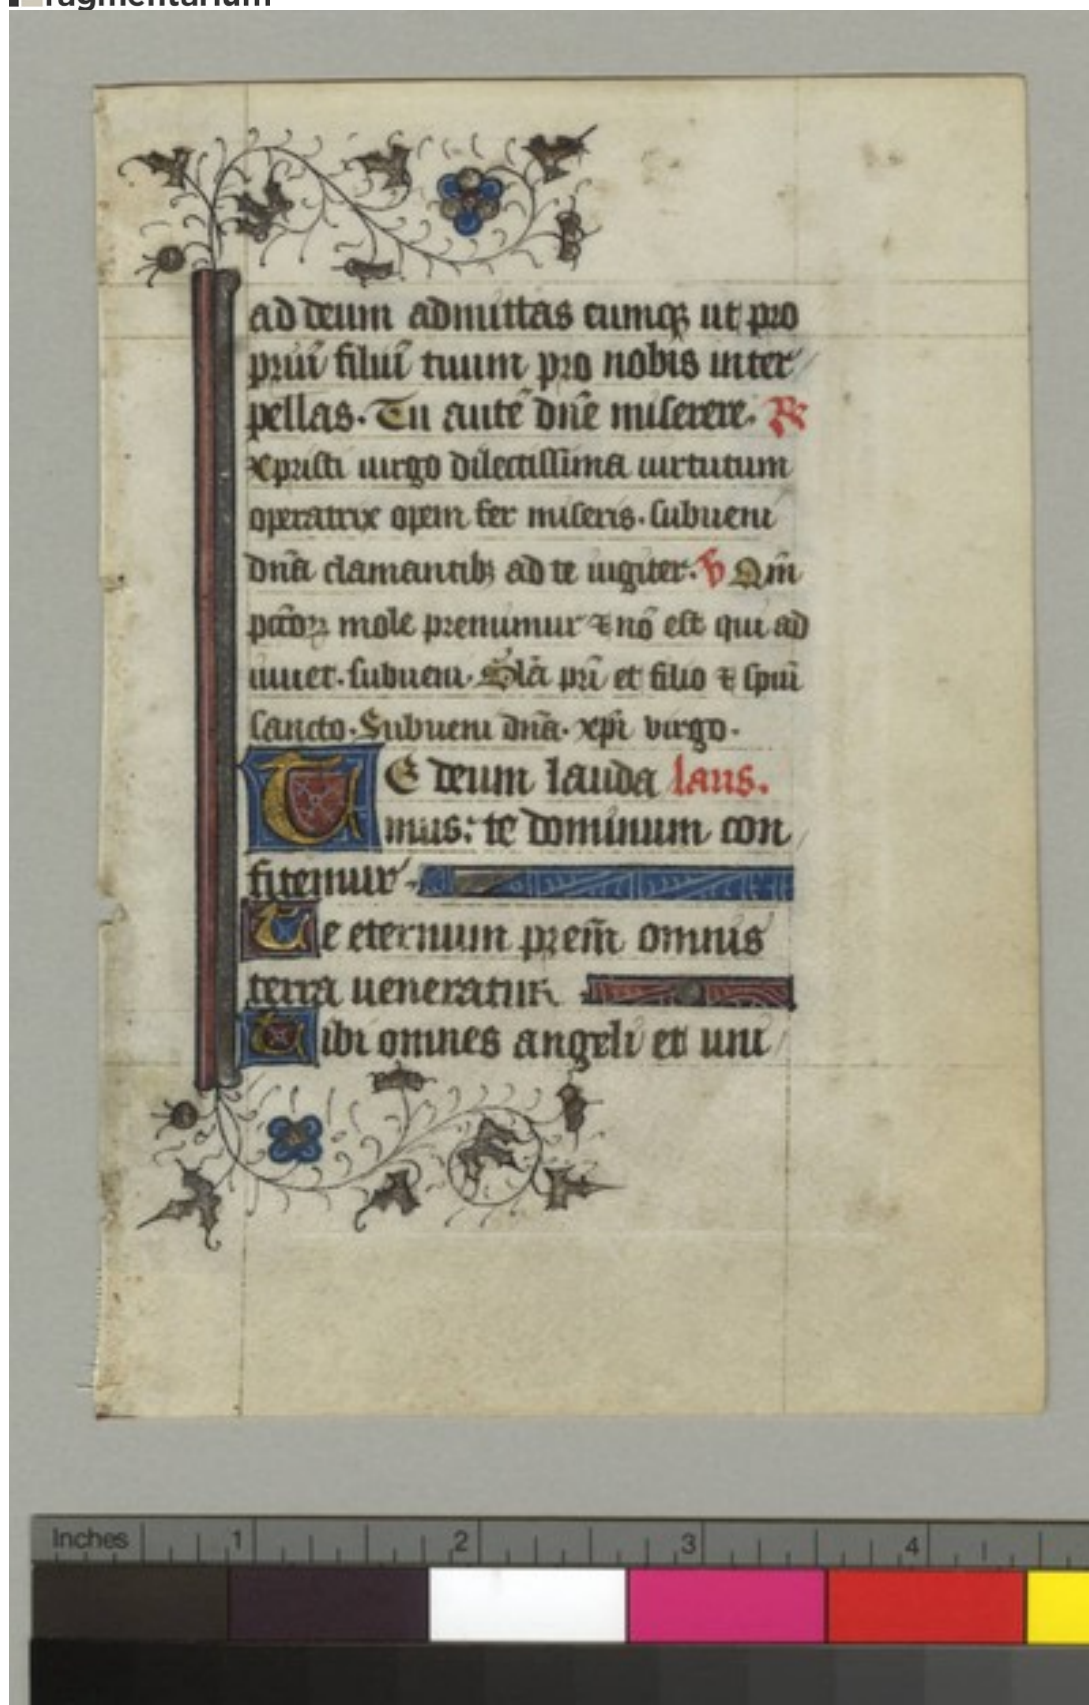 fragmentarium
ad deum admittas eumq; ut pro
priũ filiũ tuum pro nobis inter
pellas. Tu autẽ dñe miserere. ℟
xpristi uirgo dilectissima uirtutum
operatrix opem fer miseris. subueni
dñа clamantib; ad te iugiter. ℣ Qm̃
pctõꝝ mole premimur ⁊ nõ est qui ad
iuuet. subueni. Glã pri̇̃ et filio ⁊ spũi
sancto. Subueni dña. xpĩ virgo.
TE deum lauda laus.
mus: te dominum con
fitemur
Te eternum prem̃ omnis
terra ueneratur.
Tibi omnes angeli et uni
Inches 1 2 3 4